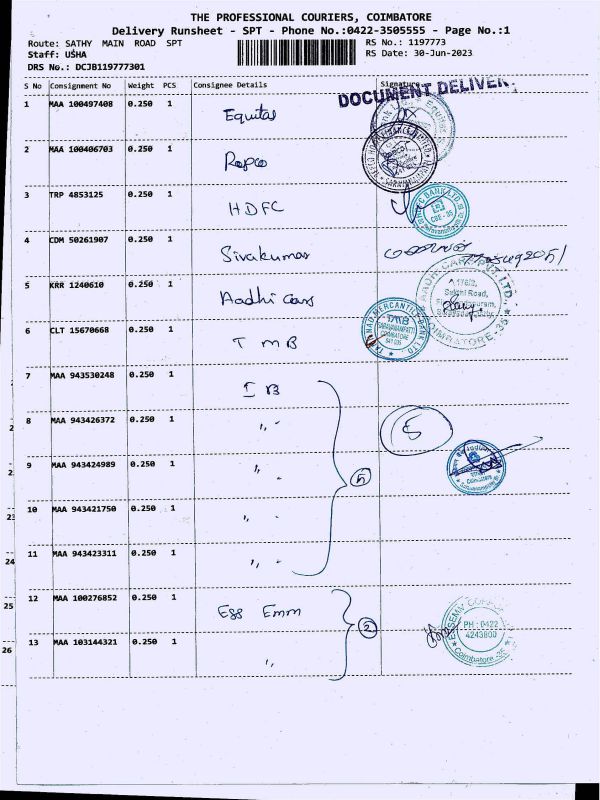 THE PROFESSIONAL COURIERS, COIMBATORE
Delivery Runsheet - SPT - Phone No.:0422-3505555 - Page No.:1
Route: SATHY MAIN ROAD SPT RS No.: 1197773
Staff: USHA RS Date: 30-Jun-2023
DRS No.: DCJB119777301
S No Consignment No Weight PCS Consignee Details Signature
DOCUMENT DELIVER
1 MAA 100497408 0.250 1 Equitas
2 MAA 100406703 0.250 1 Repco
3 TRP 4853125 0.250 1 HDFC
4 CDM 50261907 0.250 1 Sivakumar
5 KRR 1240610 0.250 1 Aadhi Cars
COIMBATORE-35
6 CLT 15670668 0.250 1 TMB
TAMILNAD MERCANTILE BANK LTD
TMB
COIMBATORE
7 MAA 943530248 0.250 1 IB
8 MAA 943426372 0.250 1 ,, -
5
9 MAA 943424989 0.250 1 ,, -
5
10 MAA 943421750 0.250 1 ,, -
23
11 MAA 943423311 0.250 1 ,, -
24
12 MAA 100276852 0.250 1 Ess Emm
25
2
PH : 0422
4243800
Coimbatore-35
13 MAA 103144321 0.250 1 ,,
26